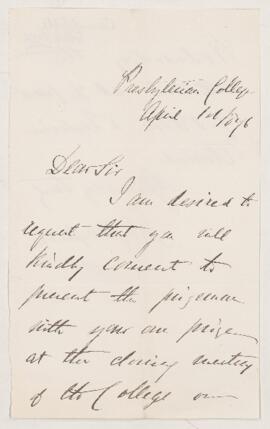 Presbyterian College
April 1st/1876
Dear Sir
I am desired to
request that you will
kindly consent to
present the prizemen
with your own prize
at the closing meeting
of the College on